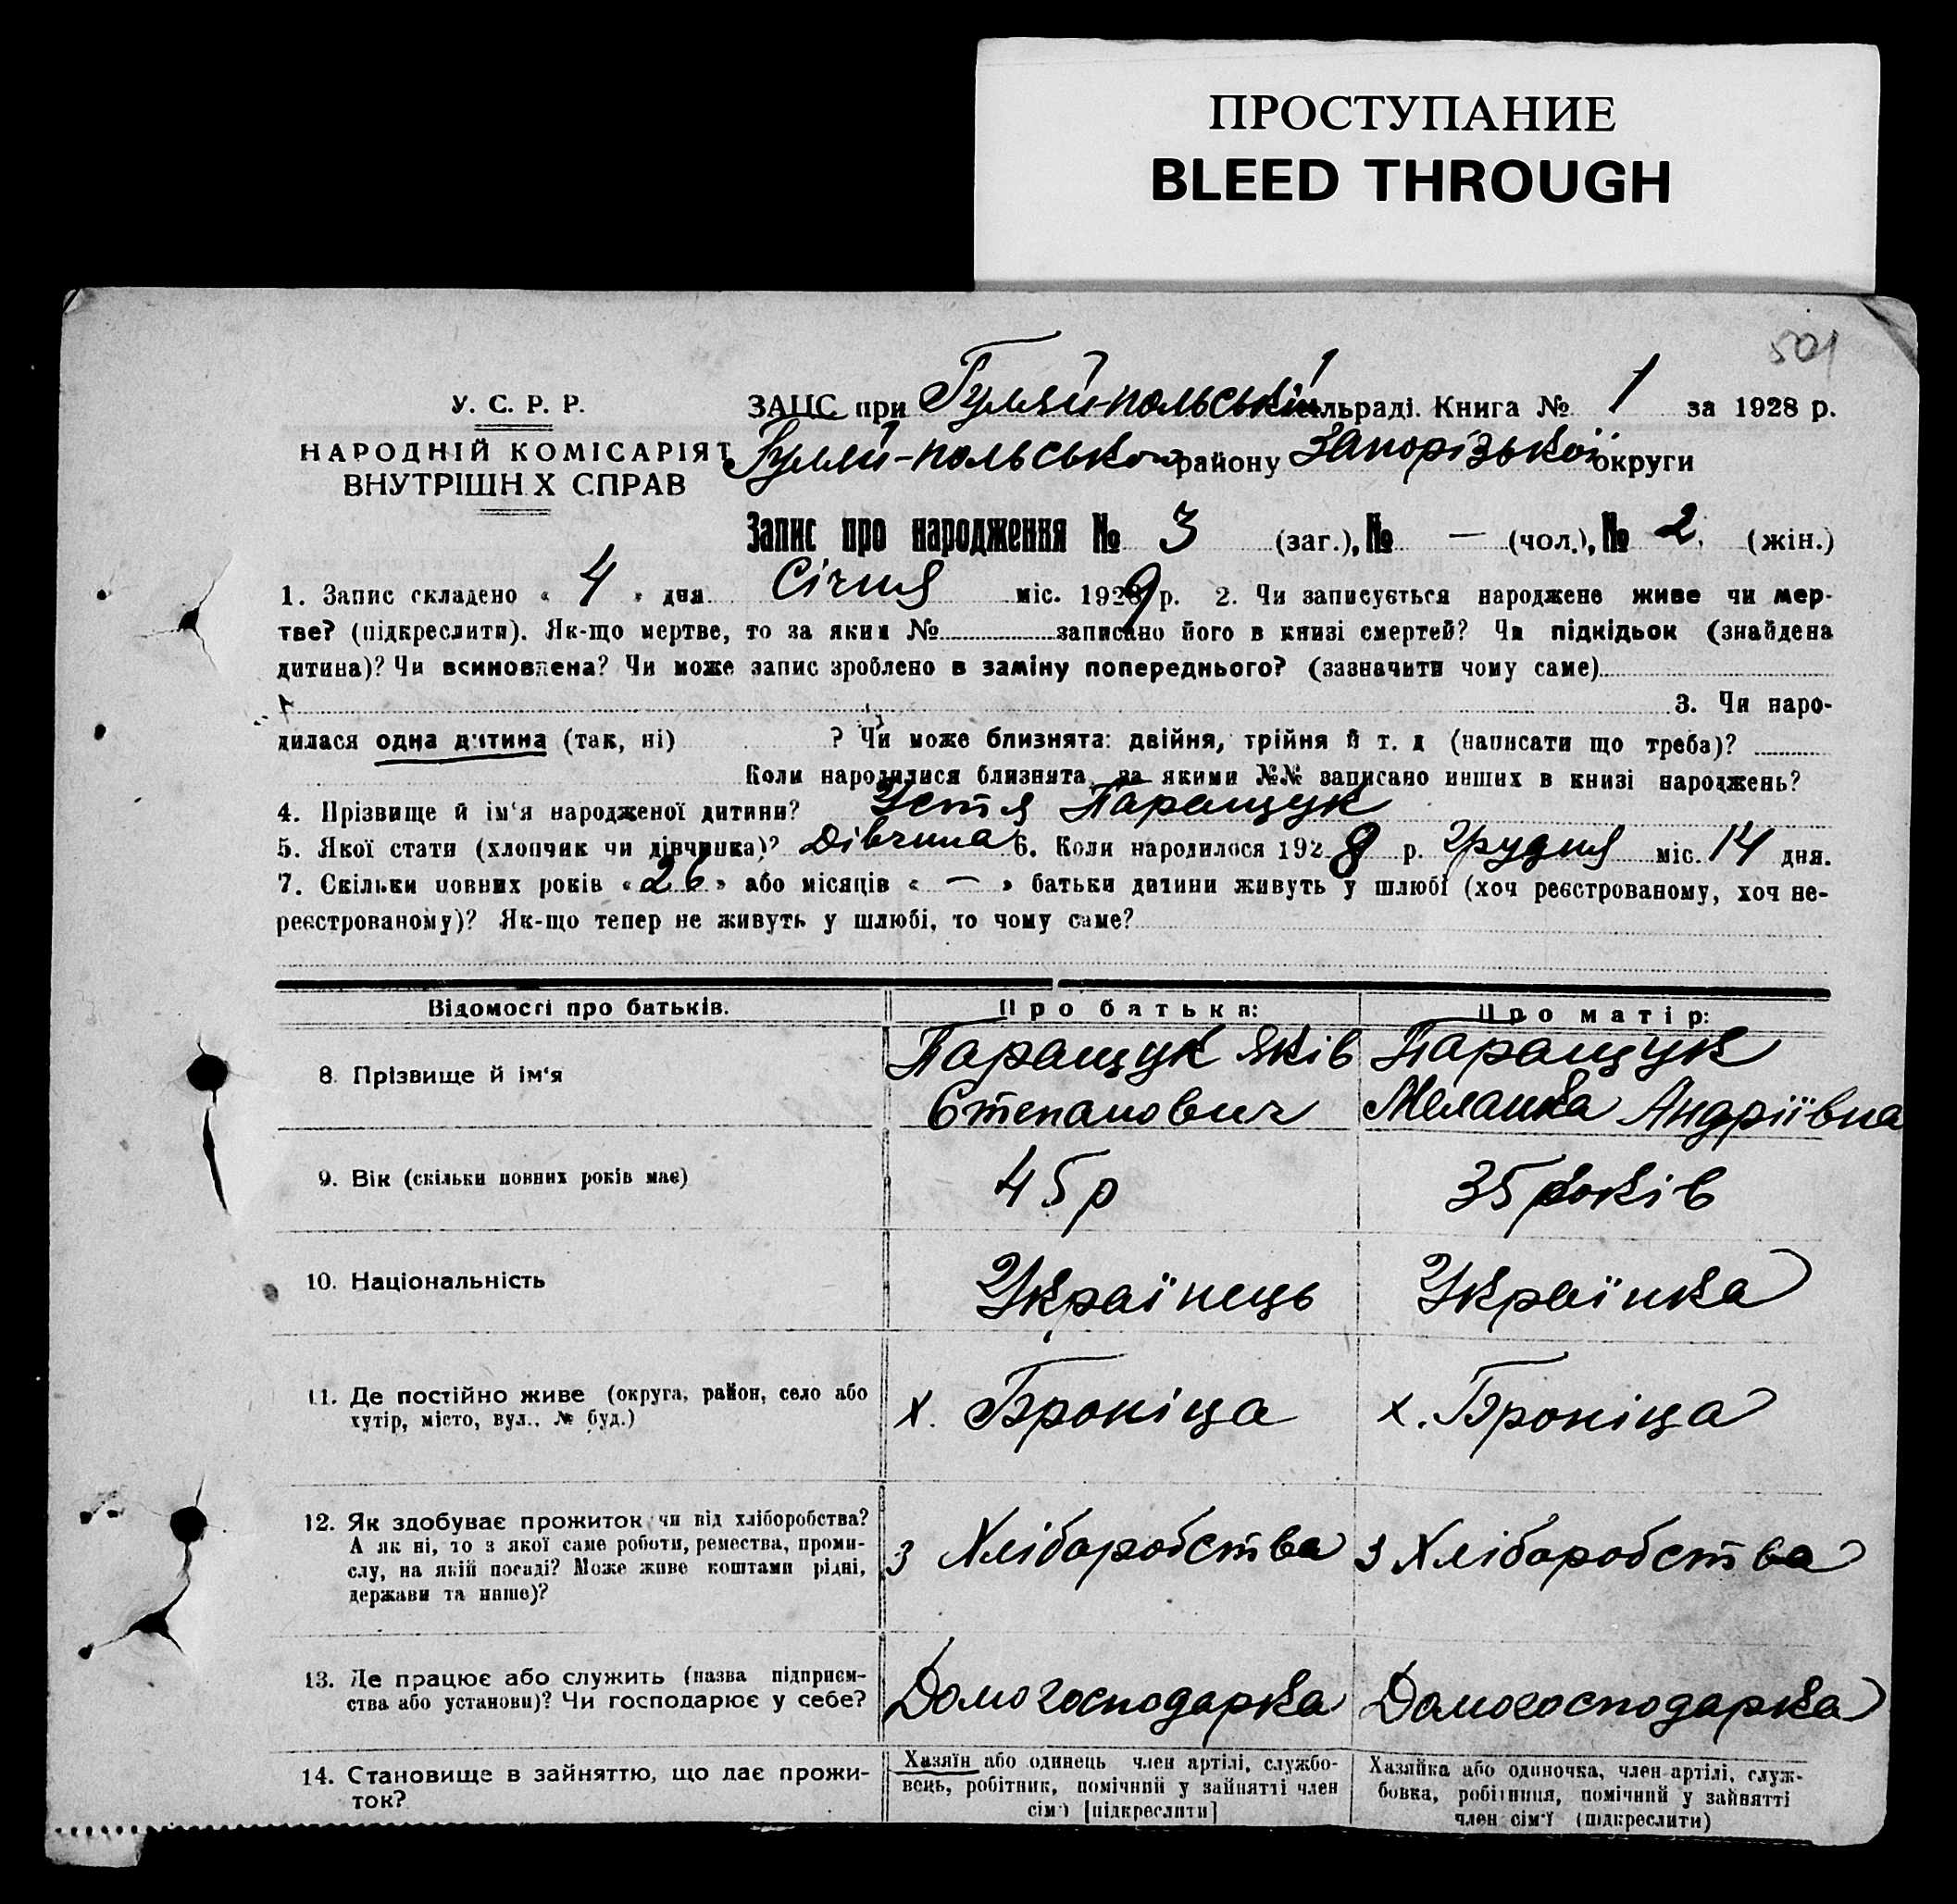 ПРОСТУПАНИЕ
BLEED THROUGH
501
У. С. Р. Р.
НАРОДНІЙ КОМІСАРІЯТ
ВНУТРІШН Х СПРАВ
ЗАЦС при Гуляй-польській сільраді. Книга № 1 за 1928 р.
Гуляй-польського району Запорізької округи
Запис про народження № 3 (заг.), № — (чол.), № 2 (жін.)
1. Запис складено « 4 » дня Січня міс. 1929 р. 2. Чи записується народжене живе чи мер-
тве? (підкреслити). Як-що мертве, то за яким № записано його в книзі смертей? Чи підкідьок (знайдена
дитина)? Чи всиновлена? Чи може запис зроблено в заміну попереднього? (зазначити чому саме)
3. Чи наро-
дилася одна дитина (так, ні) ? Чи може близнята: двійня, трійня й т. д (написати що треба)?
Коли народилися близнята, за якими №№ записано инших в книзі народжень?
4. Прізвище й ім'я народженої дитини? Устя Паращук
5. Якої стати (хлопчик чи дівчинка)? Дівчина 6. Коли народилося 1928 р. Грудня міс. 14 дня.
7. Скільки повних років « 26 » або місяців « — » батьки дитини живуть у шлюбі (хоч реєстрованому, хоч не-
реєстрованому)? Як-що тепер не живуть у шлюбі, то чому саме?
Відомості про батьків. Про батька: Про матір:
8. Прізвище й ім'я Паращук Яків Паращук
Степанович Меланка Андріївна
9. Вік (скільки повних років має) 45 р 35 років
10. Національність Українець Українка
11. Де постійно живе (округа, район, село або
хутір, місто, вул., № буд.) х. Броніца х. Броніца
12. Як здобуває прожиток чи від хліборобства?
А як ні, то з якої саме роботи, ремества, проми-
слу, на якій посаді? Може живе коштами рідні,
держави та инше)? з Хліборобства з Хліборобства
13. Де працює або служить (назва підприєм-
ства або установи)? Чи господарює у себе? Домогосподарка Домогосподарка
14. Становище в зайняттю, що дає прожи-
ток?
Хазяїн або одинець член артілі, службо-
вець, робітник, помічний у зайнятті член
сім'ї [підкреслити]
Хазяйка або одиночка, член артілі, служ-
бовка, робітниця, помічний у зайнятті
член сім'ї (підкреслити)